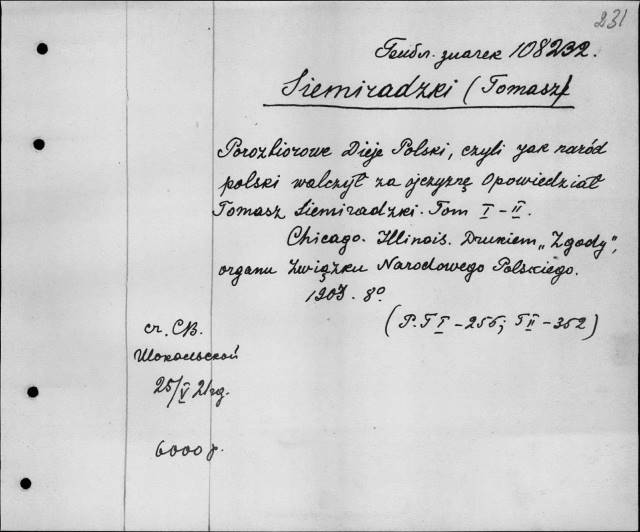 231
Генбл. значек 108232.
Siemiradzki (Tomasz)
Porozbiorowe Dieje Polski, czyli jak naród
polski walczył za ojczyznę Opowiedział
Tomasz Siemiradzki. Tom I–II.
Chicago. Illinois. Drukiem „Zgody",
organu Związku Narodowego Polskiego.
1903. 8º
(P. T I – 256; T II – 352)
ст. СВ.
25/V 21 г.
6000 р.